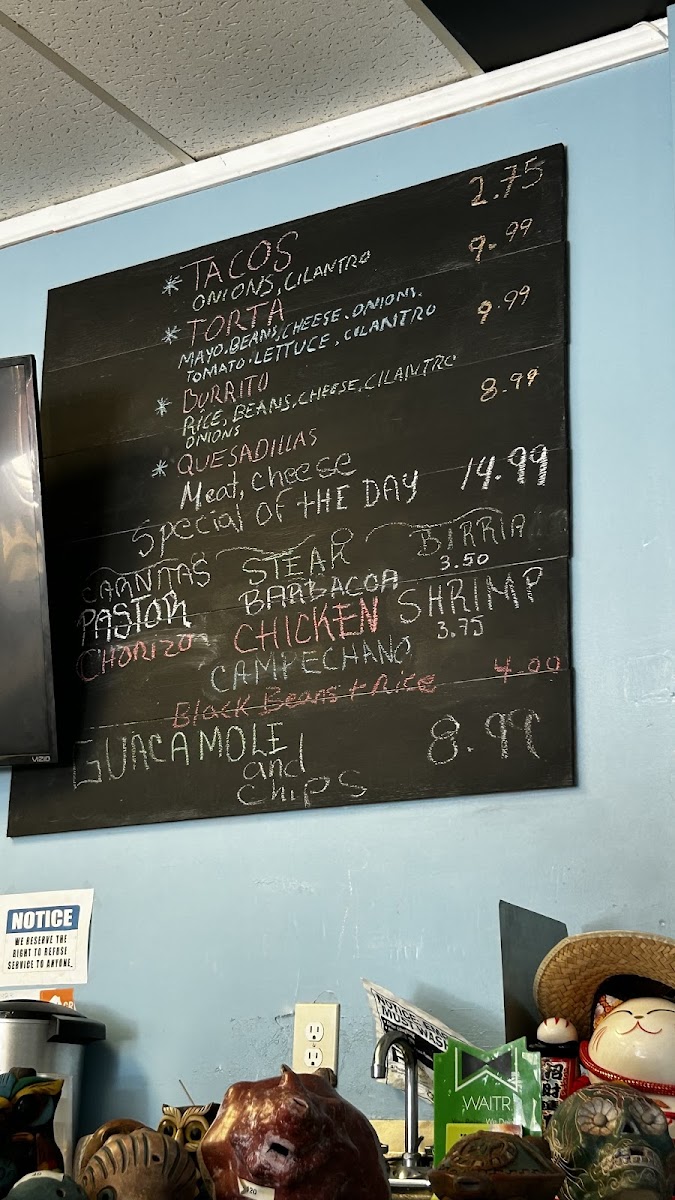 * TACOS 2.75
ONIONS, CILANTRO
* TORTA 9.99
MAYO. BEANS, CHEESE. ONIONS.
TOMATO. LETTUCE, CILANTRO
* BURRITO 9.99
RICE, BEANS, CHEESE, CILANTRO
ONIONS
* QUESADILLAS 8.99
Meat, cheese
Special OF tHE DAY 14.99
CARNITAS STEAK BIRRIA
3.50
PASTOR BARBACOA SHRIMP
3.75
CHORIZO CHICKEN
CAMPECHANO
Black Beans + Rice 4.00
GUACAMOLE 8.99
and
chips
VIZIO
NOTICE
WE RESERVE THE
RIGHT TO REFUSE
SERVICE TO ANYONE.
MUST WASH
WAITR
招財